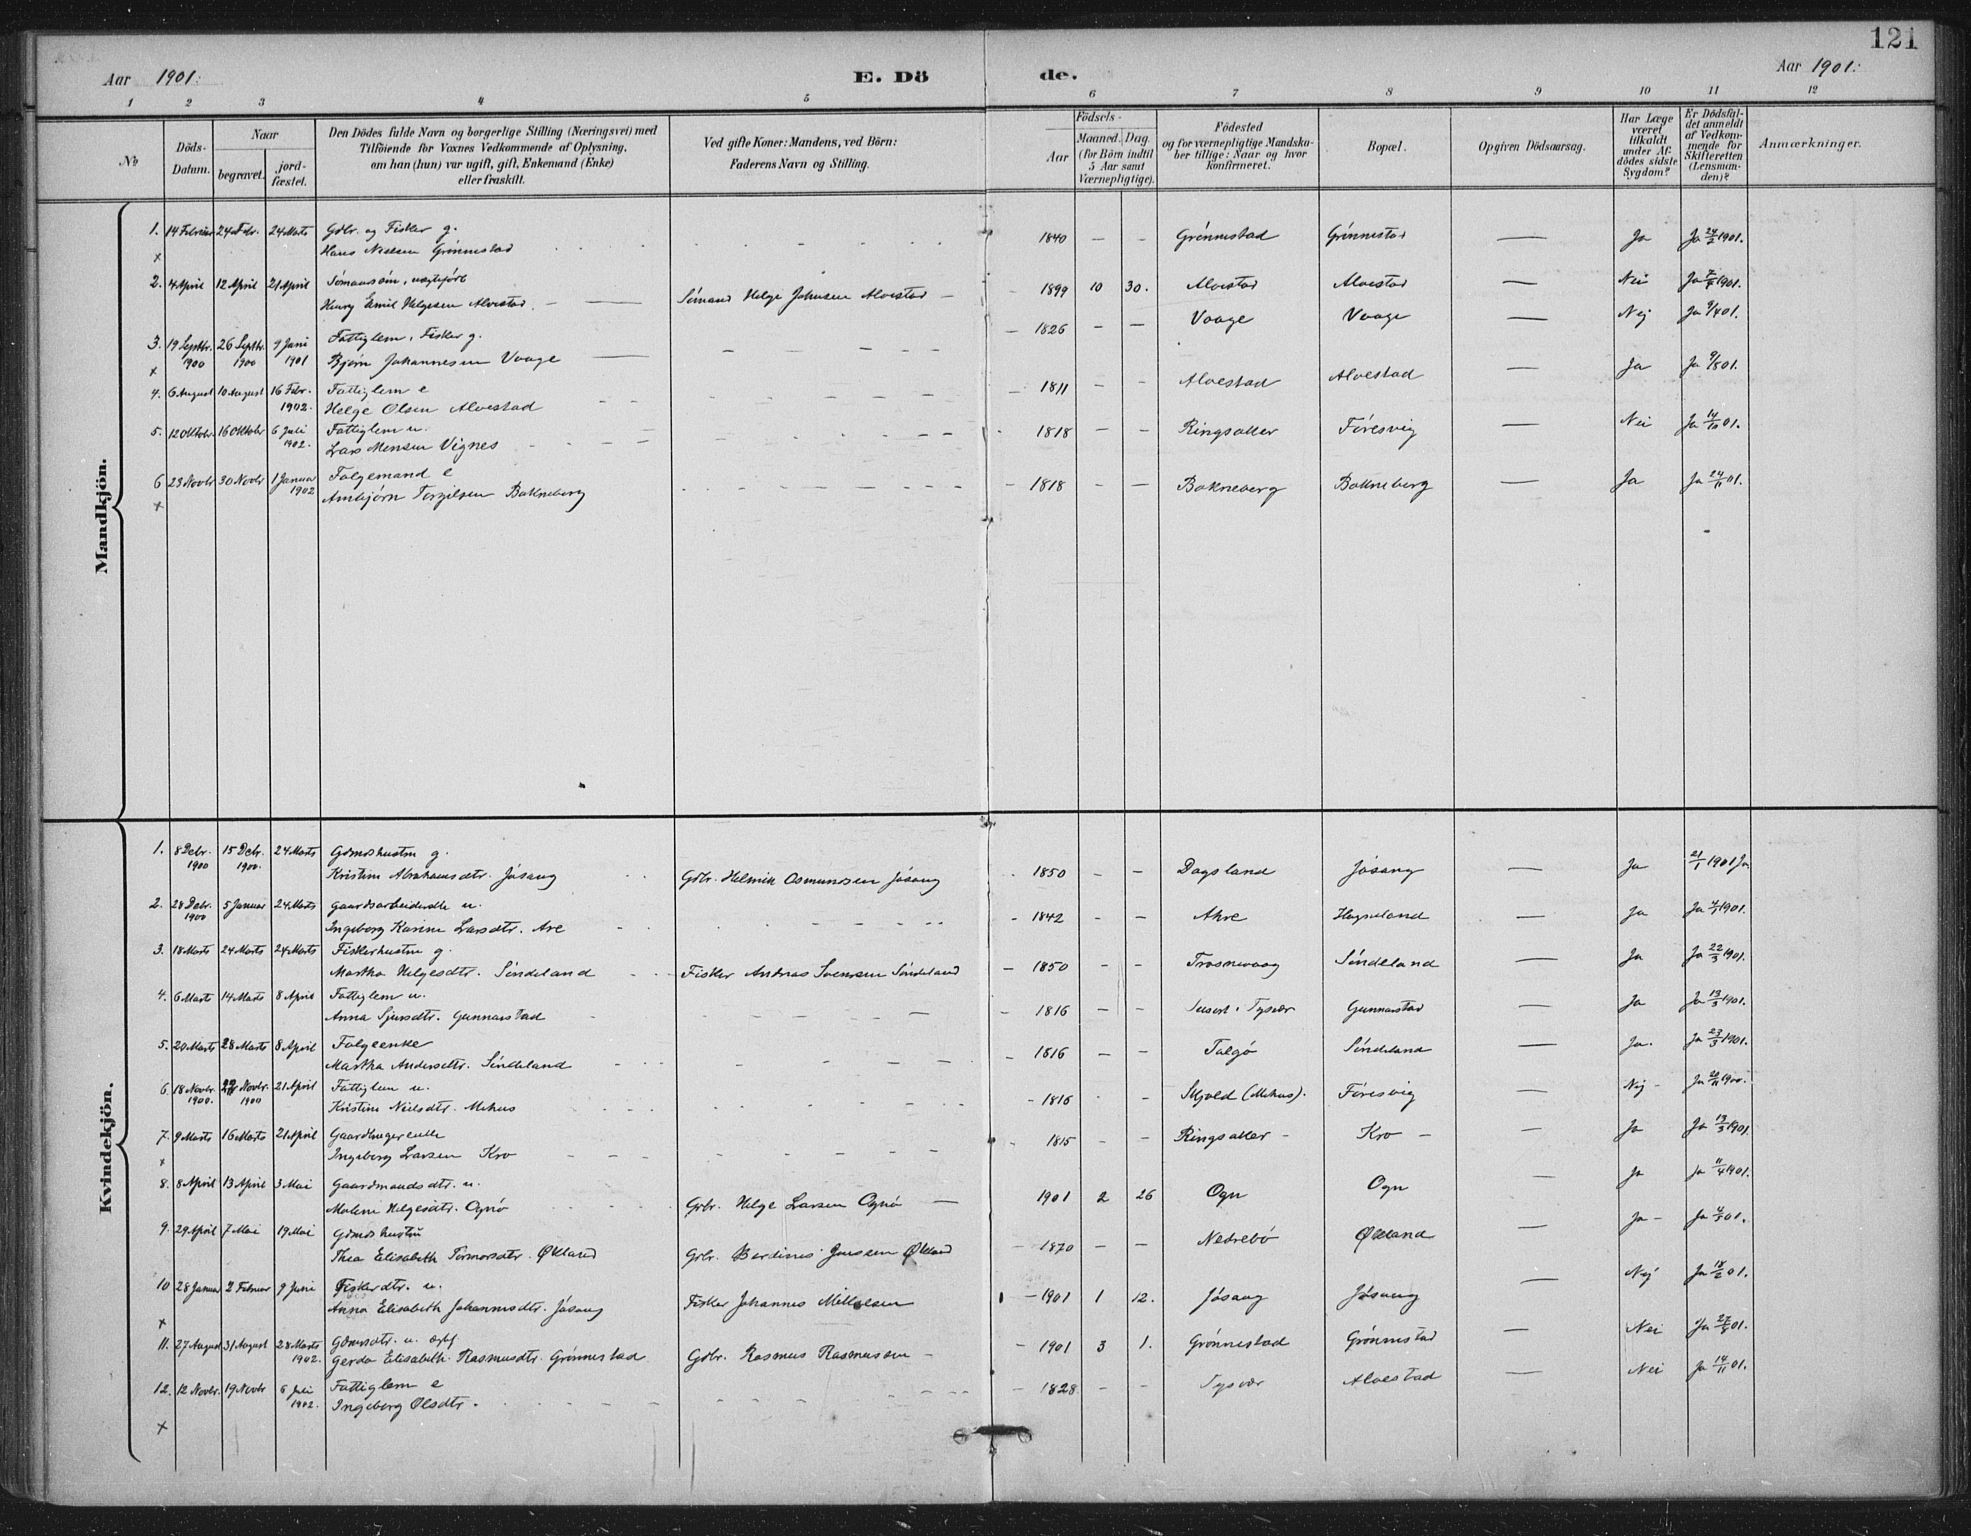 121
Aar 1901. E. Dö de. Aar 1901.
1 2 3 4 5 6 7 8 9 10 11 12
No
Döds-Datum.
Naar
begravet.
jord-fæstet.
Den Dödes fulde Navn og borgerlige Stilling (Næringsvei) med
Tilföiende for Voxnes Vedkommende af Oplysning,
om han (hun) var ugift, gift, Enkemand (Enke)
eller fraskilt.
Ved gifte Koner: Mandens, ved Börn:
Faderens Navn og Stilling.
Födsels-
Aar
Maaned. Dag.
(for Börn indtil
5 Aar samt
Værnepligtige).
Födested
og for værnepligtige Mandska-
ber tillige: Naar og hvor
konfirmeret.
Bopæl.
Opgiven Dödsaarsag.
Har Læge
været
tilkaldt
under Af-
dödes sidste
Sygdom?
Er Dödsfal-
det anmeldt
af Vedkom-
mende for
Skifteretten
(Lensman-
den)?
Anmærkninger.
Mandkjön.
1. 14 Februar 24 Febr. 24 Marts Gdbr. og Fisker g.
Hans Nielsen Grönnestad 1840 – – Grönnestad Grönnestad — Ja Ja 24/2 1901.
2. 4 April 12 April 21 April Sömandssön,
Henry Emil Helgesen Alvestad Sömand Helge Johnsen Alvestad 1899 10 30. Alvestad Alvestad — Nei Ja 1901.
3. 19 Septbr. 1900 26 Septbr. 1900 9 Juni 1901 Fattiglem, Fisker g.
Bjørn Johannesen Vaage 1826 – – Vaage Vaage — Nej Ja 9/4 01.
4. 6 August 10 August 16 Febr. 1902. Fattiglem e
Helge Olsen Alvestad 1811 – – Alvestad Alvestad — Ja Ja 9/8 01.
5. 12 Oktobr 16 Oktobr 6 Juli 1902. Fattiglem u.
Lars Monsen Vignes 1818 – – Ringsaker Föresvig — Nei Ja 14/10 01.
6 23 Novbr 30 Novbr 1 Januar 1902 Folgemand e
Ambjørn Torgilsen Bokneberg 1818 – – Bokneberg Bokneberg — Ja Ja 24/11 01.
Kvindekjön.
1. 8 Debr. 1900 15 Debr. 1900. 24 Marts Gdmdshustru g.
Kristine Abrahamsdtr. Jösang Gdbr. Helmik Osmundsen Jösang 1850 – – Dagsland Jösang — Ja 21/1 1901 Ja
2. 28 Debr. 1900 5 Januar 24 Marts Gaardsarbeiderske u.
Ingeborg Karine Larsdtr. Are 1842 – – Akre Hagneland — Ja Ja 1901.
3. 18 Marts 24 Marts 24 Marts Fiskerhustru g.
Martha Helgesdtr. Söndeland Fisker Andreas Svensen Söndeland 1850 – – Trosnevaag Söndeland — Ja Ja 22/3 1901.
4. 6 Marts 14 Marts 8 April Fattiglem u.
Anna Sjursdtr. Gunnarstad 1816 – – i Tysvær Gunnarstad — Ja Ja 13/3 1901.
5. 20 Marts 28 Marts 8 April Folgeenke
Martha Andersdtr. Söndeland 1816 – – Talgö Söndeland — Ja. Ja 23/3 1901.
6 18 Novbr. 1900. Novbr. 1900 21 April Fattiglem u.
Kristine Nielsdtr. Mehus 1816 – – Skjold (Mehus). Föresvig — Nej – Ja 1900.
7. 9 Marts 16 Marts 21 April
Ingeborg Larsen Kro 1815 – – Ringsaker – Kro – — Ja Ja 13/3 1901
8. 8 April 13 April 3 Mai Gaardmandsdtr. u.
Malene Helgesdtr. Ognö Gdbr. Helge Larsen Ognö 1901 2 26 Ogn Ogn — Ja Ja 11/4 1901.
9. 29 April 7 Mai 19 Mai Gdmdshustru
Thea Elisabeth Tormodsdtr. Ökland Gdbr. Berdines Jonssen Ökland 1870 – – Nedrebö Økland — Ja – Ja 01.
10 28 Januar 2 Februar 9 Juni Fiskerdtr. u.
Anna Elisabeth Johannesdtr. Jösang Fisker Johannes Mikkelsen 1901 1 12. Jösang Jösang — Nej Ja 18/2 01.
11. 27 August 31 August 28 Marts 1902. Gdmsdtr. u.
Gerda Elisabeth Rasmusdtr. Grönnestad Gdbr. Rasmus Rasmussen 1901 3 1. Grönnestad Grönnestad — Nei Ja 01.
12. 12 Novbr. 19 Novbr 6 Juli 1902. Fattiglem e
Ingeborg Olsdtr. 1828 – – Tysvær Alvestad — Nei Ja 14/11 01.